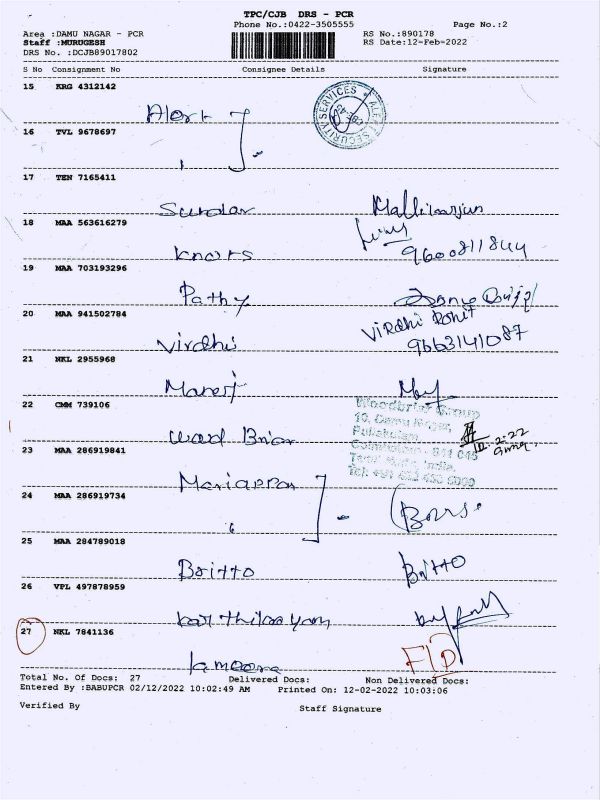 TPC/CJB DRS - PCR
Phone No.:0422-3505555 Page No.:2
Area :DAMU NAGAR - PCR RS No.:890178
Staff :MURUGESH RS Date:12-Feb-2022
DRS No. :DCJB89017802
S No Consignment No Consignee Details Signature
15 KRG 4312142
Alert
SECURITY SERVICES
16 TVL 9678697
17 TEN 7165411
Sundar Mallikarjun
18 MAA 563616279
Knars 9600811844
19 MAA 703193296
Pathy
20 MAA 941502784
Virdhi Virdhi Rohit
9663141087
21 NKL 2955968
Manerj
22 CMM 739106
Woodbriar Group
10, Damu Nagar,
Pulikulam,
Coimbatore - 641 045
Tamil Nadu, India.
Wood Briar 12.2.22
23 MAA 286919841
Mariappan
24 MAA 286919734
25 MAA 284789018
Britto Britto
26 VPL 497878959
Karthikayan
27 NKL 7841136
Lamoora
Total No. Of Docs: 27 Delivered Docs: Non Delivered Docs:
Entered By :BABUPCR 02/12/2022 10:02:49 AM Printed On: 12-02-2022 10:03:06
Verified By Staff Signature